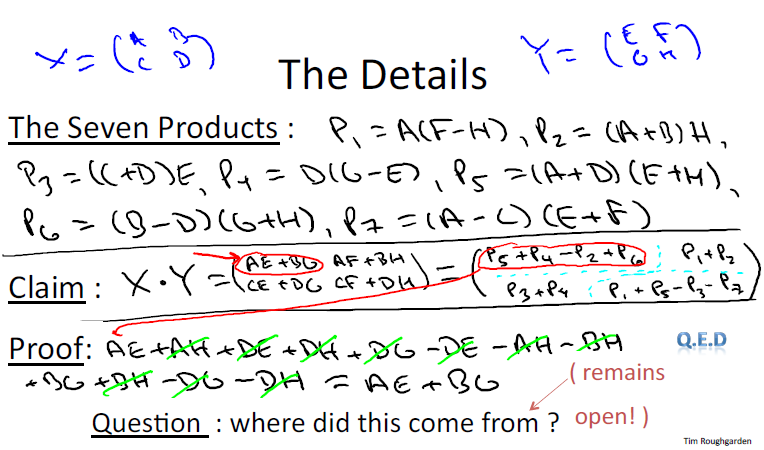 X = (A B
C D) Y = (E F
G H)
The Details
The Seven Products : P₁ = A(F-H), P₂ = (A+B)H,
P₃ = (C+D)E, P₄ = D(G-E), P₅ = (A+D)(E+H),
P₆ = (B-D)(G+H), P₇ = (A-C)(E+F)
Claim : X·Y = (AE+BG AF+BH
CE+DG CF+DH) = (P₅+P₄-P₂+P₆ P₁+P₂
P₃+P₄ P₁+P₅-P₃-P₇)
Proof: AE+AH+DE+DH+DG-DE-AH-BH Q.E.D
+BG+BH-DG-DH = AE+BG
( remains
Question : where did this come from ? open! )
Tim Roughgarden